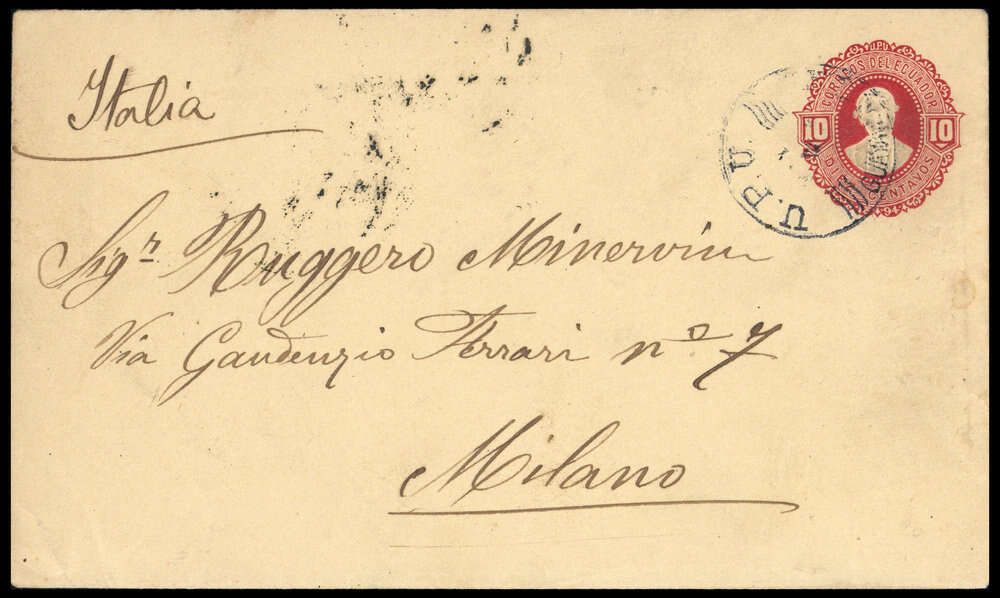 Italia
UPU
CORREOS DEL ECUADOR
10 10
CENTAVOS
94
U.P.U.
Sigr Ruggero Minervini
Via Gaudenzio Ferrari no 7
Milano